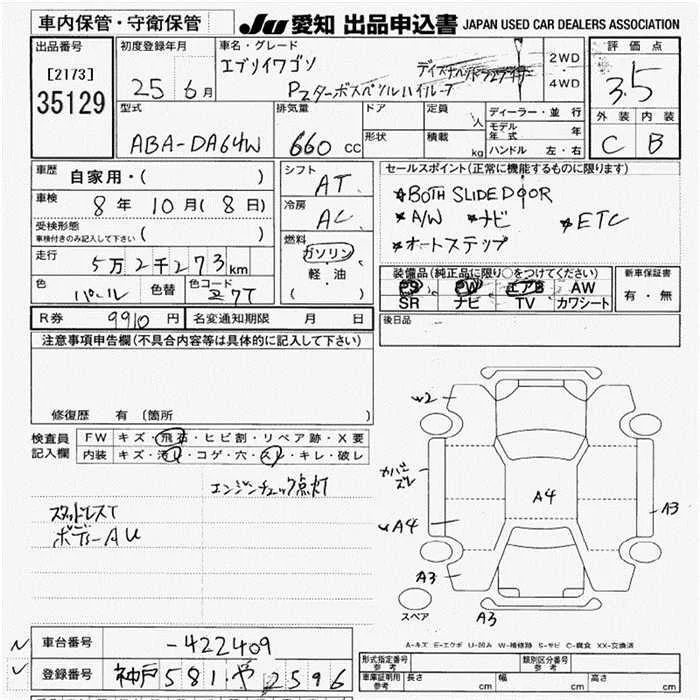 車内保管・守衛保管
JU 愛知 出品申込書 JAPAN USED CAR DEALERS ASSOCIATION
出品番号
[2173]
35129
初度登録年月
25 6月
車名・グレード
エブリイワゴン
PZターボスペシャルハイルーフ
2WD
・
4WD
評価点
3.5
外装 内装
C B
型式
ABA-DA64W
排気量
660 cc
ドア
形状
定員 人
積載 kg
ディーラー・並行
モデル年式 年
ハンドル 左・右
車歴
自家用・( )
車検
8年 10月(8日)
受検形態
車検付きのみ記入して下さい ( )
走行
5万2千273km
色 パール 色替 色コード Z7T
シフト AT
冷房 AC
燃料
ガソリン
軽・油
( )
セールスポイント(正常に機能するものに限ります)
★BOTH SLIDE DOOR
★A/W ★ナビ ★ETC
★オートステップ
装備品(純正品に限り○をつけてください)
PS PW エアB AW
SR ナビ TV カワシート
新車保証書
有・無
R券 9910円 名変通知期限 月 日
後日品
注意事項申告欄(不具合内容等は具体的に記入して下さい)
修復歴 有(箇所 )
検査員
記入欄
FW キズ・飛石・ヒビ割・リペア跡・X要
内装 キズ・汚れ・コゲ・穴・スレ・キレ・破レ
エンジンチェック点灯
スタッドレスT
ボデーAU
w2
カバーズレ
wA4
A4
A3
A3
A3
スペア
A-キズ E-エクボ U-凹み W-補修跡 S-サビ C-腐食 XX-交換済
車台番号 -422409
登録番号 神戸 581 や 2596
形式指定番号
参考
類別区分番号
参考
車庫証明用
参考
長さ cm 幅 cm 高さ cm